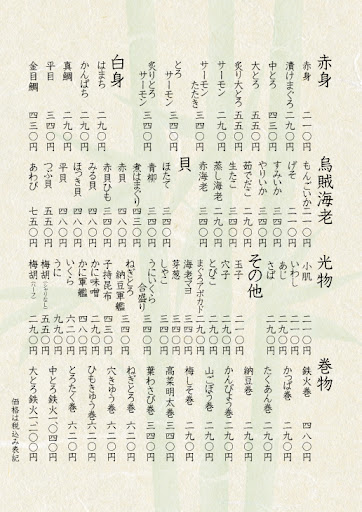 赤身
赤身 二一〇円
漬けまぐろ 二九〇円
中とろ 四三〇円
大とろ 五五〇円
炙り大とろ 五五〇円
サーモン 二九〇円
サーモンたたき 三四〇円
とろサーモン 三四〇円
炙りとろサーモン 三四〇円
白身
はまち 二九〇円
かんぱち 二九〇円
真鯛 二九〇円
平目 三四〇円
金目鯛 四三〇円
烏賊海老
もんごいか 二一〇円
げそ 二一〇円
すみいか 三四〇円
やりいか 三四〇円
茹でだこ 二九〇円
生たこ 三四〇円
蒸し海老 二九〇円
赤海老 三四〇円
貝
ほたて 三四〇円
青柳 三四〇円
煮はまぐり 三四〇円
赤貝ひも 三四〇円
赤貝 四八〇円
みる貝 四八〇円
ほっき貝
平貝
つぶ貝
あわび 七五〇円
光物
小肌 二一〇円
いわし 二一〇円
あじ
さば
その他
玉子 二一〇円
穴子
とびこ
まぐろアボカド
海老マヨ
芽葱
しゃこ
うにいくら合盛り
納豆軍艦
ねぎとろ
子持昆布
かに味噌
かに軍艦
いくら
うに
梅胡(シャリなし)
梅胡(ハーフ)
巻物
鉄火巻 四八〇円
かっぱ巻 二九〇円
たくあん巻 二九〇円
納豆巻 二九〇円
かんぴょう巻 二九〇円
山ごぼう巻 二九〇円
梅しそ巻 二九〇円
高菜明太巻 三四〇円
葉わさび巻 三四〇円
ねぎとろ巻 六二〇円
穴きゅう巻 六二〇円
ひもきゅう巻 六二〇円
とろたく巻 六二〇円
中とろ鉄火 一、〇四〇円
大とろ鉄火 一、二〇〇円
価格は税込み表記